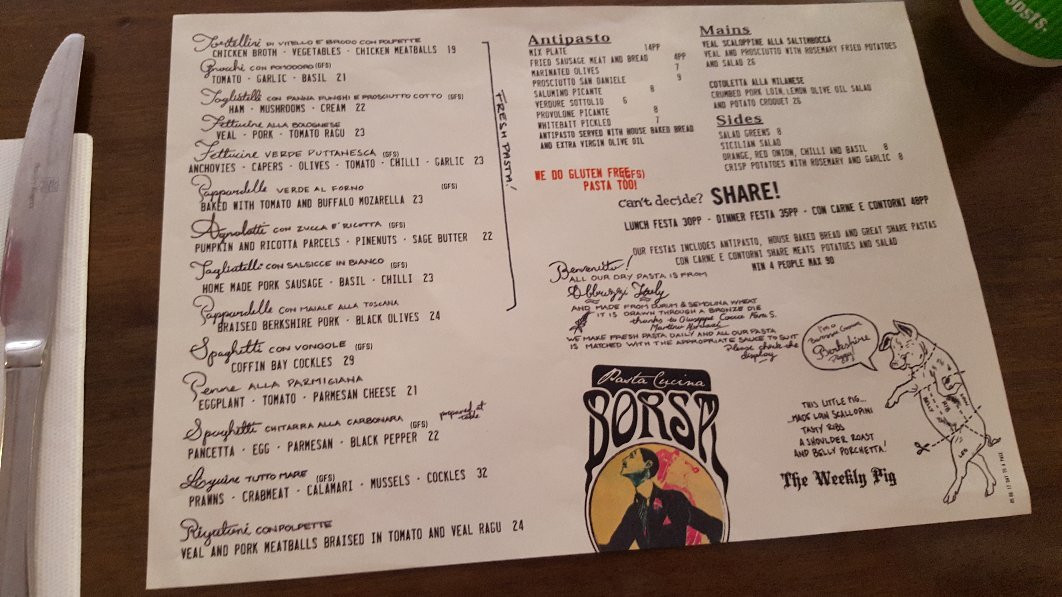 Tortellini DI VITELLO E BRODO CON POLPETTE
CHICKEN BROTH · VEGETABLES · CHICKEN MEATBALLS 19
Gnocchi CON POMODORO (GFS)
TOMATO · GARLIC · BASIL 21
Tagliatelli CON PANNA FUNGHI E PROSCIUTTO COTTO (GFS)
HAM · MUSHROOMS · CREAM 22
Fettucine ALLA BOLOGNESE
VEAL · PORK · TOMATO RAGU 23
Fettucine VERDE PUTTANESCA (GFS)
ANCHOVIES · CAPERS · OLIVES · TOMATO · CHILLI · GARLIC 23
Pappardelle VERDE AL FORNO (GFS)
BAKED WITH TOMATO AND BUFFALO MOZARELLA 23
Agnolotti CON ZUCCA E' RICOTTA (GFS)
PUMPKIN AND RICOTTA PARCELS · PINENUTS · SAGE BUTTER 22
Tagliatelli CON SALSICCE IN BIANCO (GFS)
HOME MADE PORK SAUSAGE · BASIL · CHILLI 23
Pappardelle CON MAIALE ALLA TOSCANA
BRAISED BERKSHIRE PORK · BLACK OLIVES 24
Spaghetti CON VONGOLE (GFS)
COFFIN BAY COCKLES 29
Penne ALLA PARMIGIANA
EGGPLANT · TOMATO · PARMESAN CHEESE 21
Spaghetti CHITARRA ALLA CARBONARA (GFS) prepared at table
PANCETTA · EGG · PARMESAN · BLACK PEPPER 22
Linguine TUTTO MARE (GFS)
PRAWNS · CRABMEAT · CALAMARI · MUSSELS · COCKLES 32
Rigatoni CON POLPETTE
VEAL AND PORK MEATBALLS BRAISED IN TOMATO AND VEAL RAGU 24
FRESH PASTA!
Antipasto
MIX PLATE 14PP
FRIED SAUSAGE MEAT AND BREAD 4PP
MARINATED OLIVES 7
PROSCIUTTO SAN DANIELE 9
SALUMINO PICANTE 8
VERDURE SOTTOLIO 6
PROVOLONE PICANTE 8
WHITEBAIT PICKLED 7
ANTIPASTO SERVED WITH HOUSE BAKED BREAD
AND EXTRA VIRGIN OLIVE OIL
WE DO GLUTEN FREE (GFS)
PASTA TOO!
Mains
VEAL SCALOPPINE ALLA SALTINBOCCA
VEAL AND PROSCIUTTO WITH ROSEMARY FRIED POTATOES
AND SALAD 26
COTOLETTA ALLA MILANESE
CRUMBED PORK LOIN, LEMON OLIVE OIL SALAD
AND POTATO CROQUET 26
Sides
SALAD GREENS 8
SICILIAN SALAD
ORANGE, RED ONION, CHILLI AND BASIL 8
CRISP POTATOES WITH ROSEMARY AND GARLIC 8
can't decide? SHARE!
LUNCH FESTA 30PP - DINNER FESTA 35PP - CON CARNE E CONTORNI 48PP
OUR FESTAS INCLUDES ANTIPASTO, HOUSE BAKED BREAD AND GREAT SHARE PASTAS
CON CARNE E CONTORNI SHARE MEATS POTATOES AND SALAD
MIN 4 PEOPLE MAX 90
Benvenuti!
ALL OUR DRY PASTA IS FROM
Abbruzzi Italy
AND MADE FROM DURUM & SEMOLINA WHEAT
IT IS DRAWN THROUGH A BRONZE DIE
thanks to Giuseppe Cocco Fara S.
Martino
WE MAKE FRESH PASTA DAILY AND ALL OUR PASTA
IS MATCHED WITH THE APPROPRIATE SAUCE TO SUIT
Please check the
display
Pasta Cucina
BORSA
I'm a
Berkshire
Piggy!
THIS LITTLE PIG...
...MADE LOIN SCALLOPINI
TASTY RIBS
A SHOULDER ROAST
AND BELLY PORCHETTA!
The Weekly Pig
BELLY
RIB
LOIN
LEG